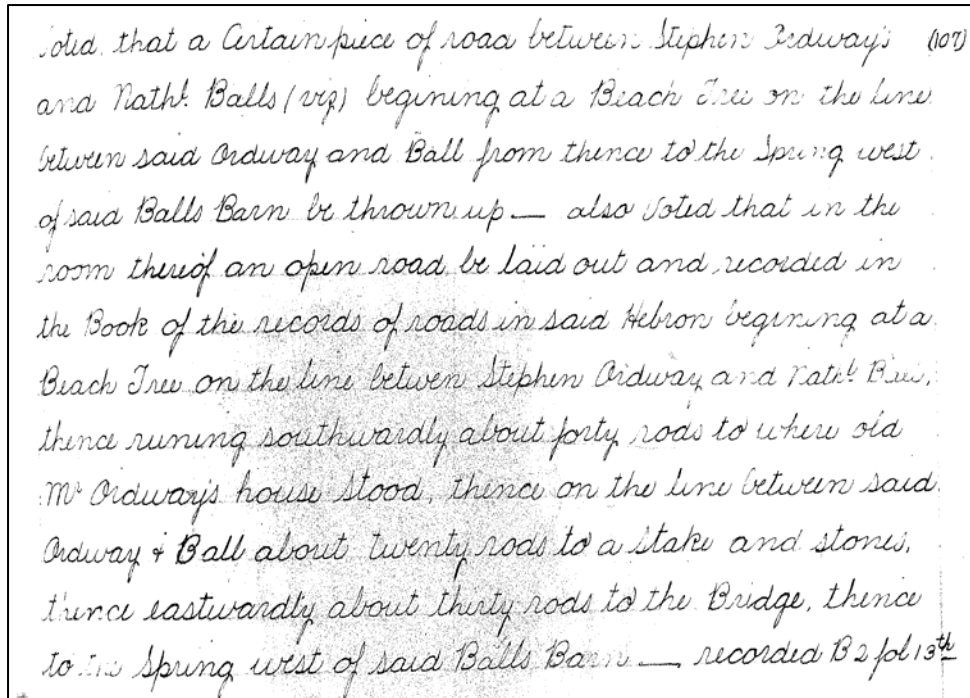 Voted that a Certain piece of road between Stephen Ordway's (107)
and Nathl. Balls (viz) begining at a Beach Tree on the line
between said Ordway and Ball from thence to the Spring west
of said Balls Barn be thrown up — also Voted that in the
room thereof an open road be laid out and recorded in
the Book of the records of roads in said Hebron begining at a
Beach Tree on the line betwen Stephen Ordway and Nathl.
thence runing southwardly about forty rods to where old
Mr Ordway's house stood, thence on the line between said
Ordway & Ball about twenty rods to a stake and stones,
thence eastwardly about thirty rods to the Bridge, thence
to the Spring west of said Balls Barn — recorded B 2 fol 13th